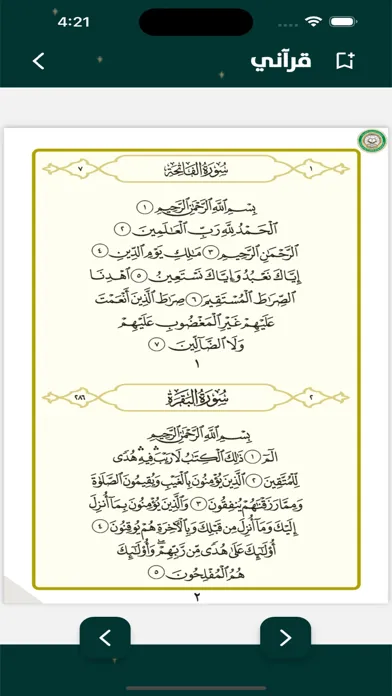 4:21
قرآني
٧ سُورَةُ الفَاتِحَةِ ١
بِسْمِ ٱللَّهِ ٱلرَّحْمَٰنِ ٱلرَّحِيمِ ١
ٱلْحَمْدُ لِلَّهِ رَبِّ ٱلْعَٰلَمِينَ ٢
ٱلرَّحْمَٰنِ ٱلرَّحِيمِ ٣ مَٰلِكِ يَوْمِ ٱلدِّينِ ٤
إِيَّاكَ نَعْبُدُ وَإِيَّاكَ نَسْتَعِينُ ٥ ٱهْدِنَا
ٱلصِّرَٰطَ ٱلْمُسْتَقِيمَ ٦ صِرَٰطَ ٱلَّذِينَ أَنْعَمْتَ
عَلَيْهِمْ غَيْرِ ٱلْمَغْضُوبِ عَلَيْهِمْ
وَلَا ٱلضَّآلِّينَ ٧
١
٢٨٦ سُورَةُ البَقَرَةِ ٢
بِسْمِ ٱللَّهِ ٱلرَّحْمَٰنِ ٱلرَّحِيمِ
الٓمٓ ١ ذَٰلِكَ ٱلْكِتَٰبُ لَا رَيْبَۛ فِيهِۛ هُدًى
لِّلْمُتَّقِينَ ٢ ٱلَّذِينَ يُؤْمِنُونَ بِٱلْغَيْبِ وَيُقِيمُونَ ٱلصَّلَوٰةَ
وَمِمَّا رَزَقْنَٰهُمْ يُنفِقُونَ ٣ وَٱلَّذِينَ يُؤْمِنُونَ بِمَآ أُنزِلَ
إِلَيْكَ وَمَآ أُنزِلَ مِن قَبْلِكَ وَبِٱلْأَخِرَةِ هُمْ يُوقِنُونَ ٤
أُو۟لَٰٓئِكَ عَلَىٰ هُدًى مِّن رَّبِّهِمْۖ وَأُو۟لَٰٓئِكَ
هُمُ ٱلْمُفْلِحُونَ ٥
٢